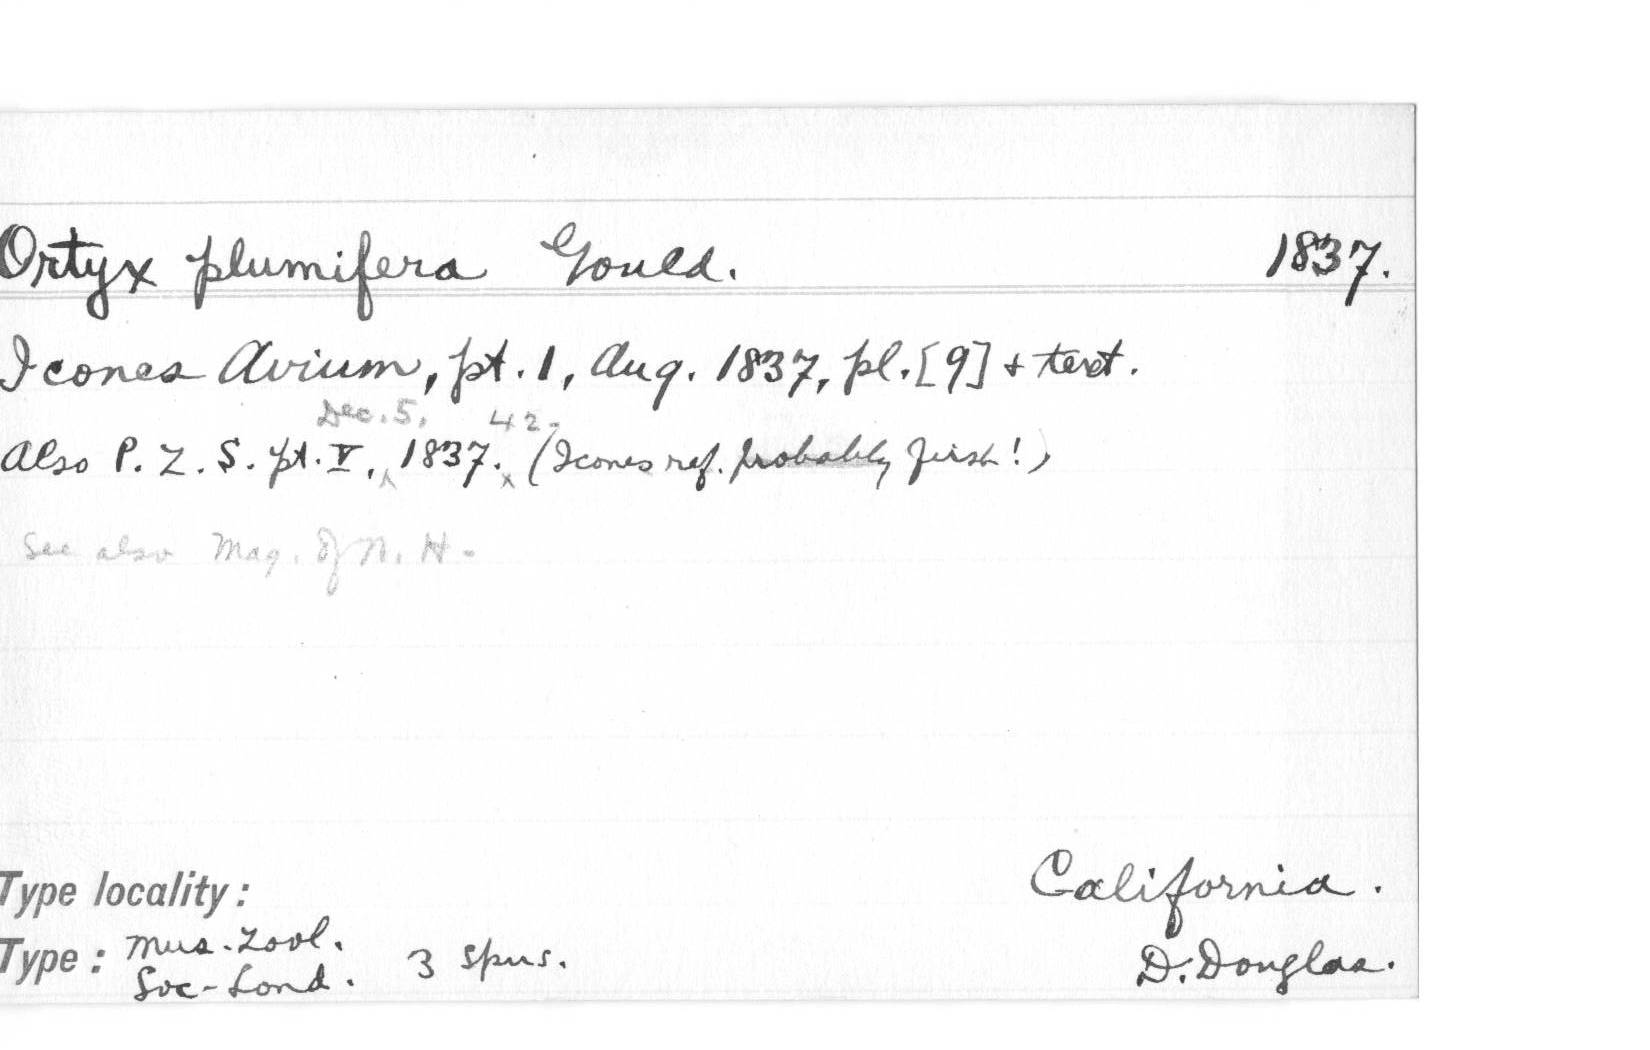 Ortyx plumifera Gould. 1837.
Icones Avium, pt. 1, Aug. 1837, pl. [9] + text.
Dec. 5, 42.
Also P. Z. S. pt. V, ^ 1837. x (Icones ref. probably first!)
See also Mag. of N. H.
Type locality: California.
Type: Mus. Zool. Soc. Lond. 3 spns. D. Douglas.